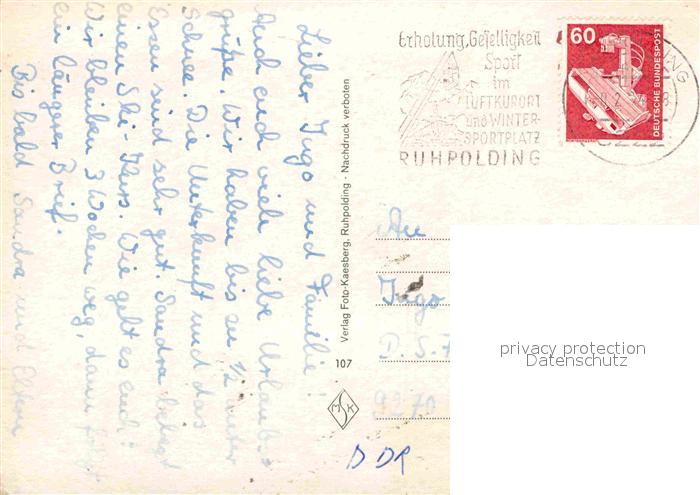 Lieber Ingo und Familie!
Auch euch viele liebe Urlaubs-
grüße. Wir haben bis zu 1/2 Meter
Schnee. Die Unterkunft und das
Essen sind sehr gut. Sandra belegt
einen Ski-Kurs. Wie geht es euch?
Wir bleiben 3 Wochen weg, dann folgt
ein längerer Brief.
Bis bald Sandra und Eltern
Verlag Foto-Kaesberg, Ruhpolding - Nachdruck verboten
107
MSK
Erholung, Geselligkeit
Sport
im
LUFTKURORT
und WINTER-
SPORTPLATZ
RUHPOLDING
60
DEUTSCHE BUNDESPOST
An
Ingo
9270
DDR
privacy protection
Datenschutz